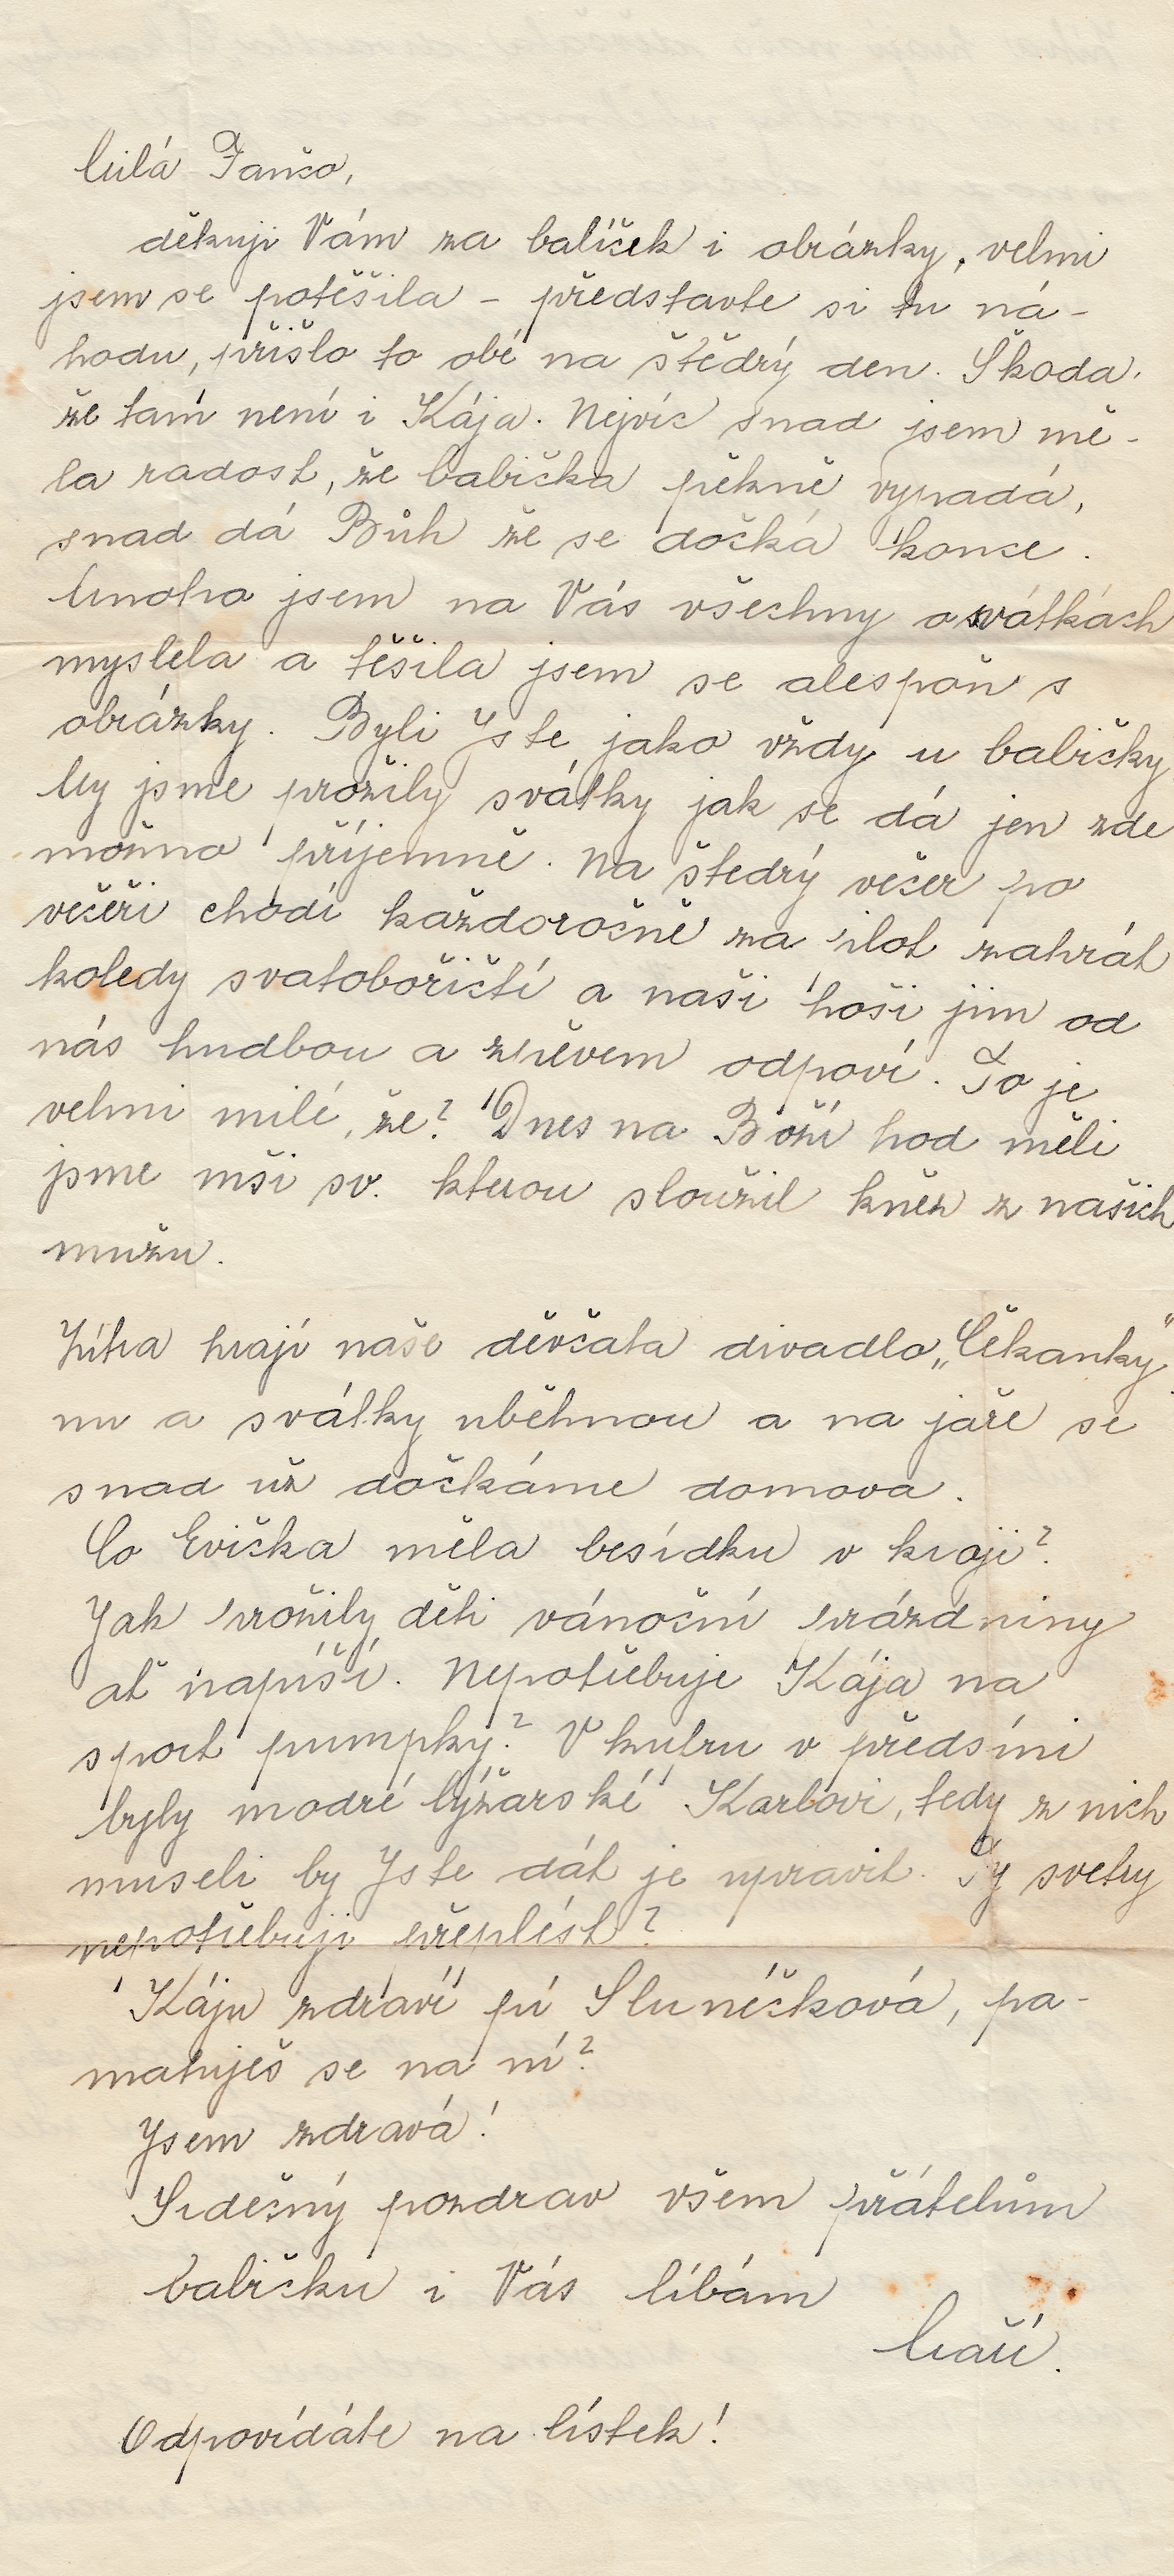 Milá Fančo,
děkuji Vám za balíček i obrázky, velmi
jsem se potěšila – představte si tu ná-
hodu, přišlo to obé na štědrý den. Škoda,
že tam není i Kája. Nejvíc snad jsem mě-
la radost, že babička pěkně vypadá,
snad dá Bůh že se dočká konce.
Mnoho jsem na Vás všechny o svátkách
myslela a těšila jsem se alespoň s
obrázky. Byli Jste jako vždy u babičky
My jsme prožily svátky jak se dá jen zde
možno příjemně. Na štedrý večer po
večeři chodí každoročně za plot zahrát
koledy svatobořičtí a naši hoši jim od
nás hudbou a zpěvem odpoví. To je
velmi milé, že? Dnes na Boží hod měli
jsme mši sv. kterou sloužil kněz z našich
mužu.
Zítra hrají naše děvčata divadlo „Čekanky"
nu a svátky uběhnou a na jaře se
snad už dočkáme domova.
Co Evička měla besídku v kroji?
Jak prožily děti vánoční prázdniny
ať napíší. Nepotřebuje Kája na
sport pumpky? V kufru v předsíni
byly modré lyžařské Karlovi, tedy z nich
museli by Jste dát je upravit. Ty svetry
nepotřebuji přeplést?
Káju zdraví pí Slunéčková, pa-
matuješ se na ní?
Jsem zdravá!
Srdečný pozdrav všem přátelům
babičku i Vás líbám
Maří.
Odpovídáte na lístek!